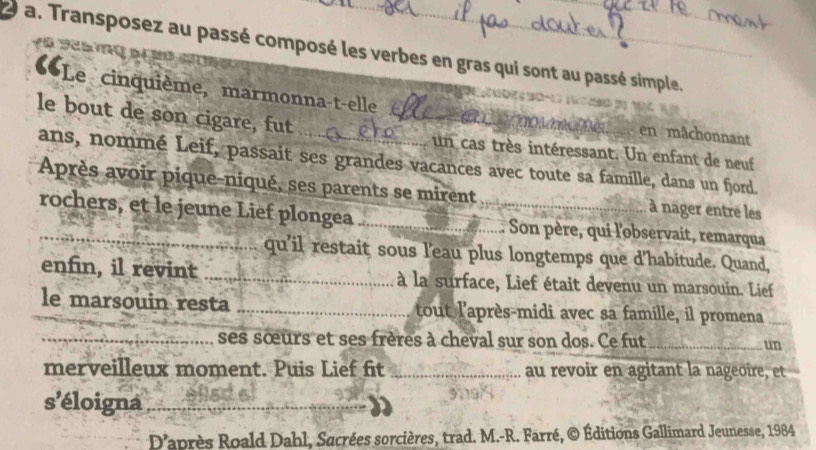 if pas douter?
2 a. Transposez au passé composé les verbes en gras qui sont au passé simple.
“Le cinquième, marmonna-t-elle elle a marmonné en mâchonnant
le bout de son cigare, fut a été un cas très intéressant. Un enfant de neuf
ans, nommé Leif, passait ses grandes vacances avec toute sa famille, dans un fjord.
Après avoir pique-niqué, ses parents se mirent ... à nager entre les
rochers, et le jeune Lief plongea ... Son père, qui l'observait, remarqua
... qu'il restait sous l'eau plus longtemps que d'habitude. Quand,
enfin, il revint ... à la surface, Lief était devenu un marsouin. Lief
le marsouin resta ... tout l'après-midi avec sa famille, il promena ...
... ses sœurs et ses frères à cheval sur son dos. Ce fut ... un
merveilleux moment. Puis Lief fit ... au revoir en agitant la nageoire, et
s'éloigna ... ”
D'après Roald Dahl, Sacrées sorcières, trad. M.-R. Farré, © Éditions Gallimard Jeunesse, 1984